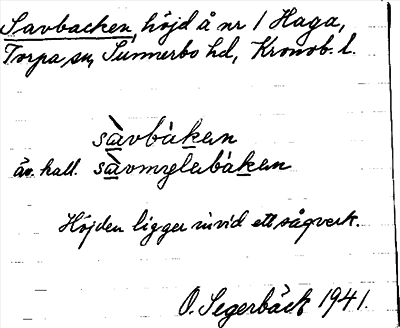 Savbacken, höjd å nr 1 Haga,
Torpa sn, Sunnerbo hd, Kronob. l.
sàvbákan
äv. kall. sàvmylebákan
Höjden ligger invid ett sågverk.
O. Segerbäck 1941.